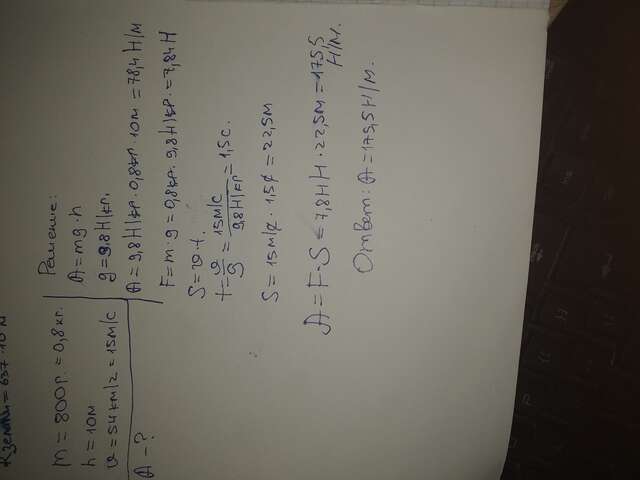 m = 800г. = 0,8кг.
h = 10м
υ = 54км/г = 15м/с
A - ?
Решение:
A = mg · h
g = 9.8Н/кг.
A = 9,8Н/кг · 0,8кг · 10м = 78,4 Н/м
F = m · g = 0,8кг · 9,8Н/кг. = 7,84Н
S = υ · t.
t = υ/g = 15м/с / 9,8Н/кг = 1,5с.
S = 15м/с · 1,5с = 22,5м
A = F · S = 7,8Н · 22,5м = 175,5
Н/м.
Ответ: A = 175,5 Н/м.